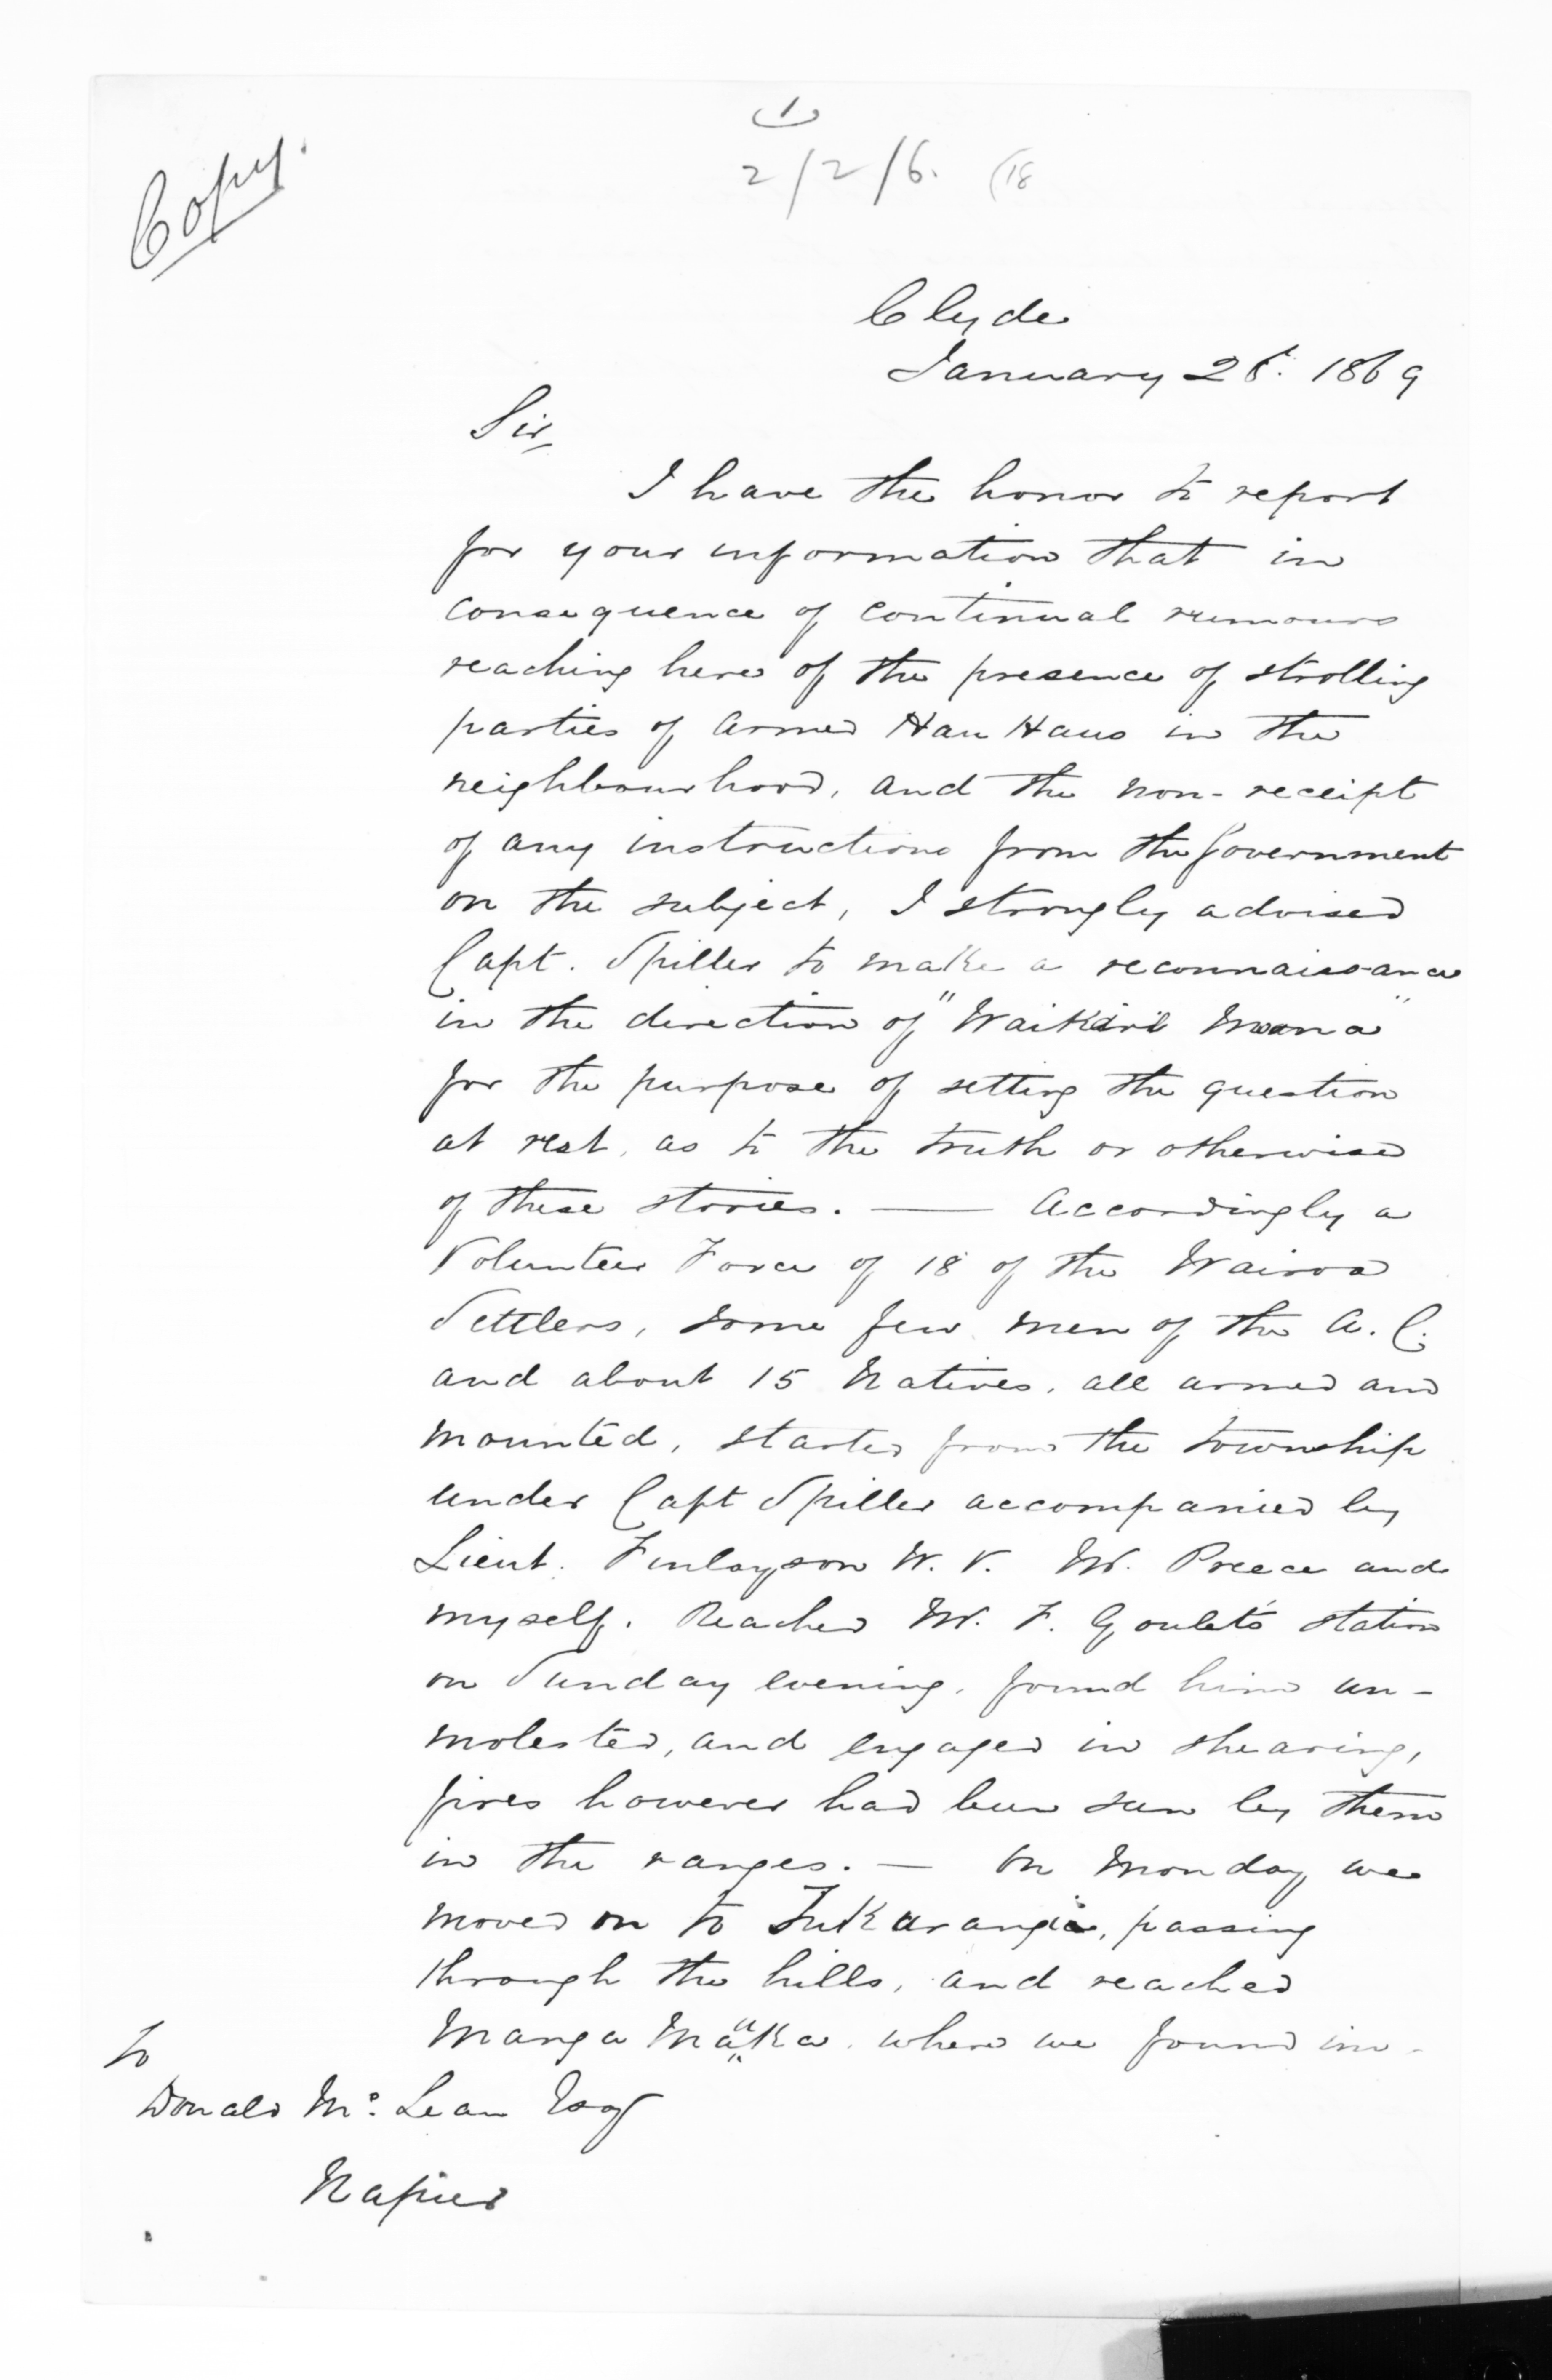 Copy.
(1)
2/2/6. (18
Clyde
January 28. 1869
Sir,
I have the honor to report
for your information that in
consequence of continual rumours
reaching here of the presence of strolling
parties of armed Hau Haus in the
neighbourhood, and the non-receipt
of any instructions from the Government
on the subject, I strongly advised
Capt. Spiller to make a reconnaissance
in the direction of "Waikari Moana"
for the purpose of setting the question
at rest, as to the truth or otherwise
of these stories. — Accordingly a
Volunteer Force of 18 of the Wairoa
Settlers, some few men of the A. C.
and about 15 Natives, all armed and
mounted, started from the township
under Capt Spiller accompanied by
Lieut. Finlayson W. V. Mr. Preece and
myself. Reached Mr. F. Goulet's station
on Sunday evening, found him un-
molested, and engaged in shearing,
fires however had been seen by them
in the ranges. — On Monday we
moved on to Tukurangi, passing
through the hills, and reached
Manga where we found im-
To
Donald Mc. Lean Esq
Napier